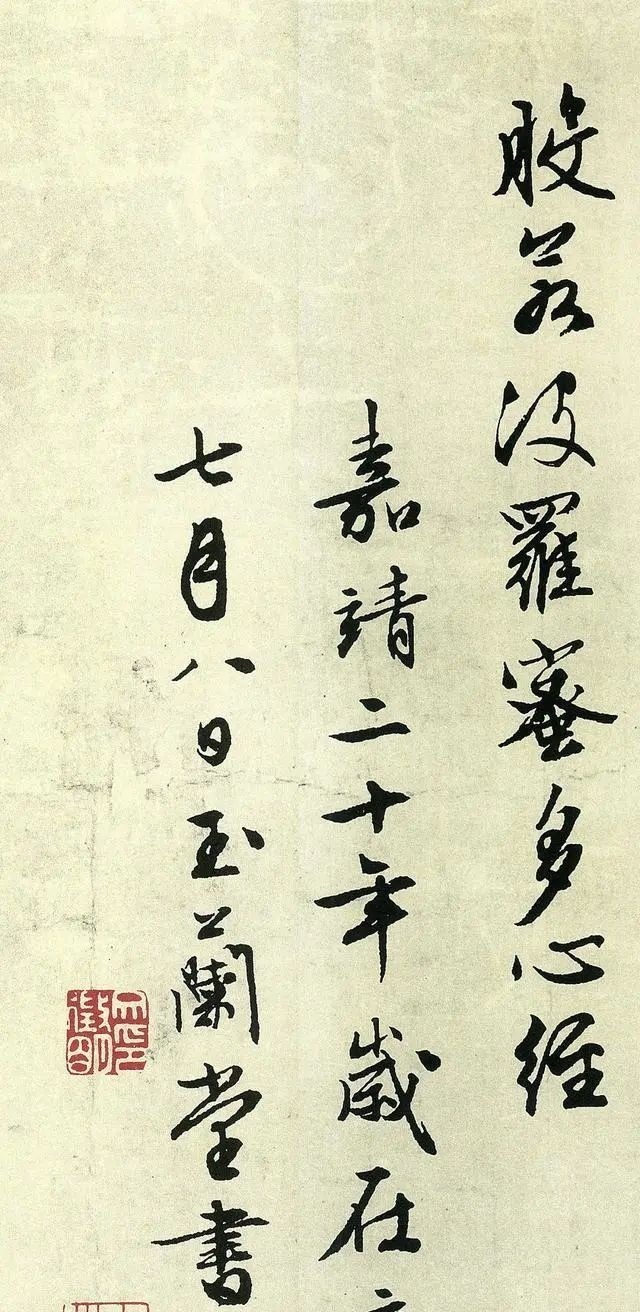 般若波羅蜜多心經
嘉靖二十年歲在
七月八日玉蘭堂書
徵明